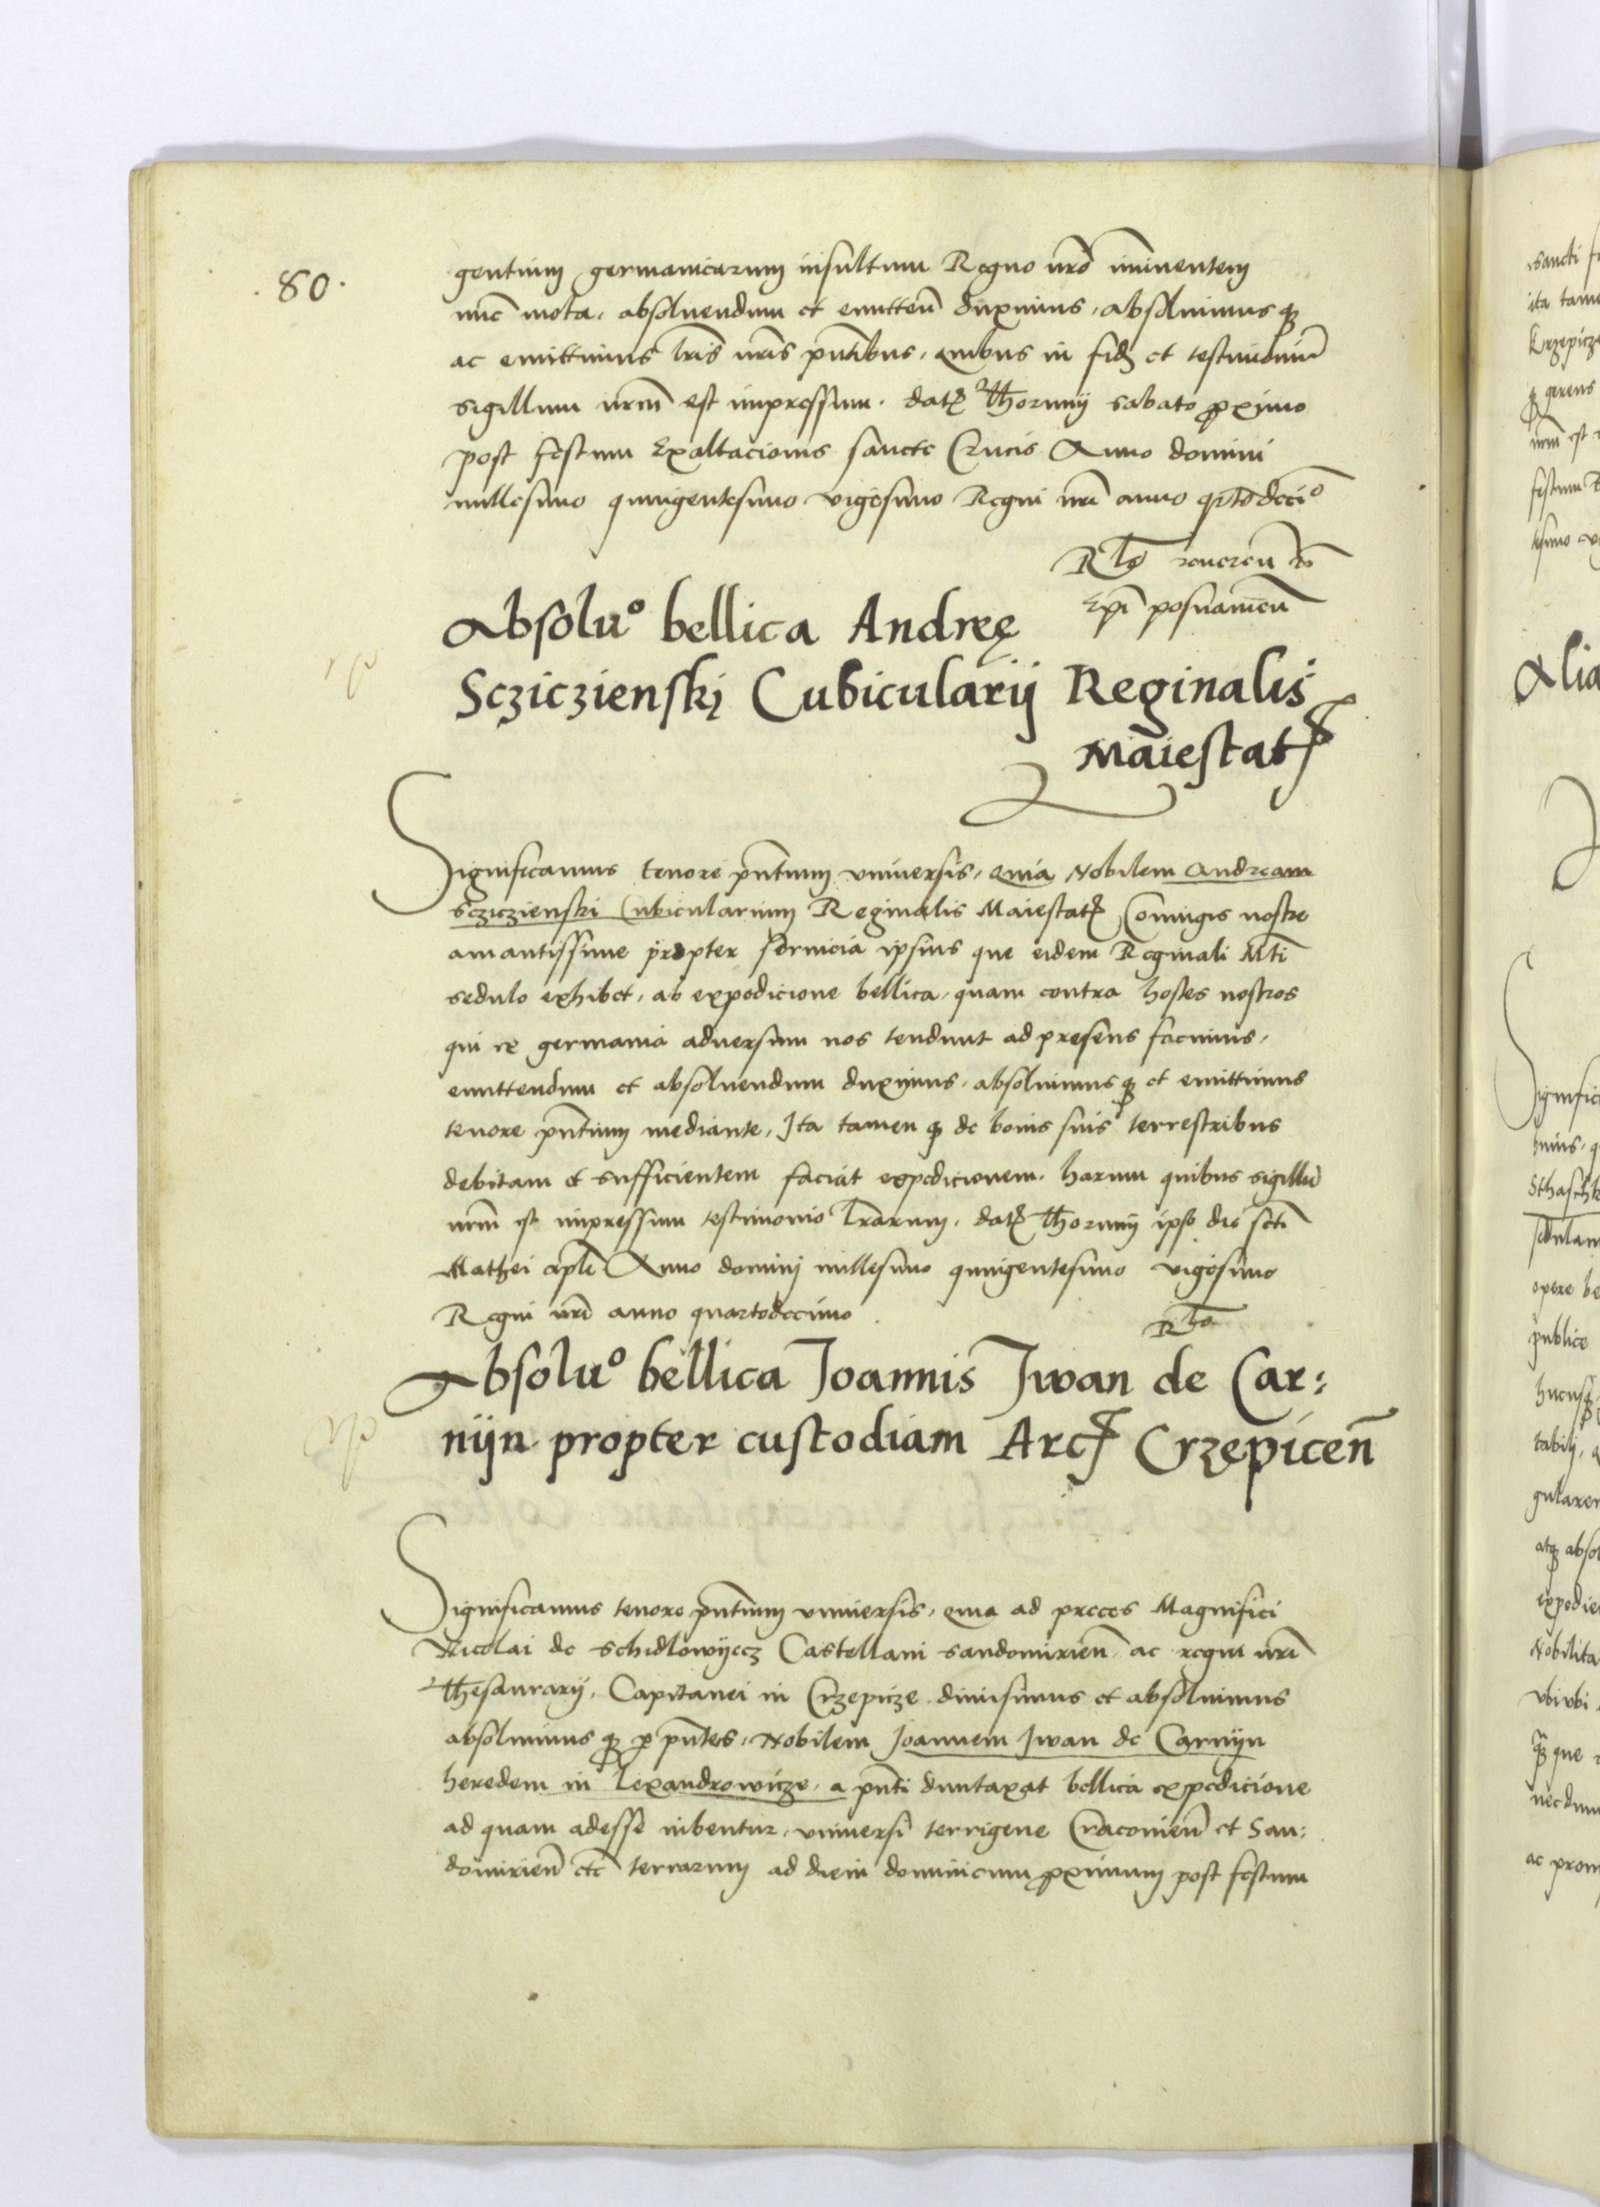 . 80 .
gentium germanicarum insultum Regno nrō iminentem
nūc mota, absoluendum et emitteñ duximus, absoluimusqꝫ
ac emittimus lrīs nrīs pn̄tibus, quibus in fidē et testimoniū
sigillum nrm̄ est impressum. datꝭ Thorunij sabato ꝓximo
post festum Exaltacionis sancte Crucis Anno domini
millesimo quingentesimo vigesimo Regni nrī anno qrtodecio
Rlō reuereñ do
Epī posnanieñ
Absoluº bellica Andreę
Scziczienski Cubicularij Reginalis
Maiestatꝭ
Significamus tenore pn̄tium vniuersis, quia Nobilem Andream
Scziczienski Cubicularium Reginalis Maiestatꝭ Coniugis nostre
amantissime propter seruicia ipsius que eidem Reginali Mti
sedulo exhibet, ab expedicione bellica, quam contra hostes nostros
qui ex germania aduersum nos tendunt ad presens facimus,
emittendum et absoluendum duximus, absoluimusqꝫ et emittimus
tenore pn̄tium mediante, Ita tamen qꝫ de bonis suis terrestribus
debitam et sufficientem faciat expedicionem. harum quibus sigillū
nrm̄ est impressum testimonio lrārum. datꝭ Thorunij ipso die scti
Mathei apli Anno domini millesimo quingentesimo vigesimo
Regni nrī anno quartodecimo
Rlō
Absoluº bellica Joannis Jwan de Car:
nijn propter custodiam Arcꝭ Crzepiceñ
Significamus tenore pn̄tium vniuersis, quia ad preces Magnifici
Nicolai de Schidlowijecz Castellani sandomirieñ ac regni nrī
Thesaurarij, Capitanei in Crzepicze dimisimus et absoluimus
absoluimusqꝫ ꝑ pn̄tes, Nobilem Joannem Jwan de Carnijn
heredem in Lexandrowicze, a pn̄ti duntaxat bellica expedicione
ad quam adesse iubentur, vniuersi terrigene Cracouieñ et San:
domirieñ etc̄ terrarum ad diem dominicum ꝓximum post festum